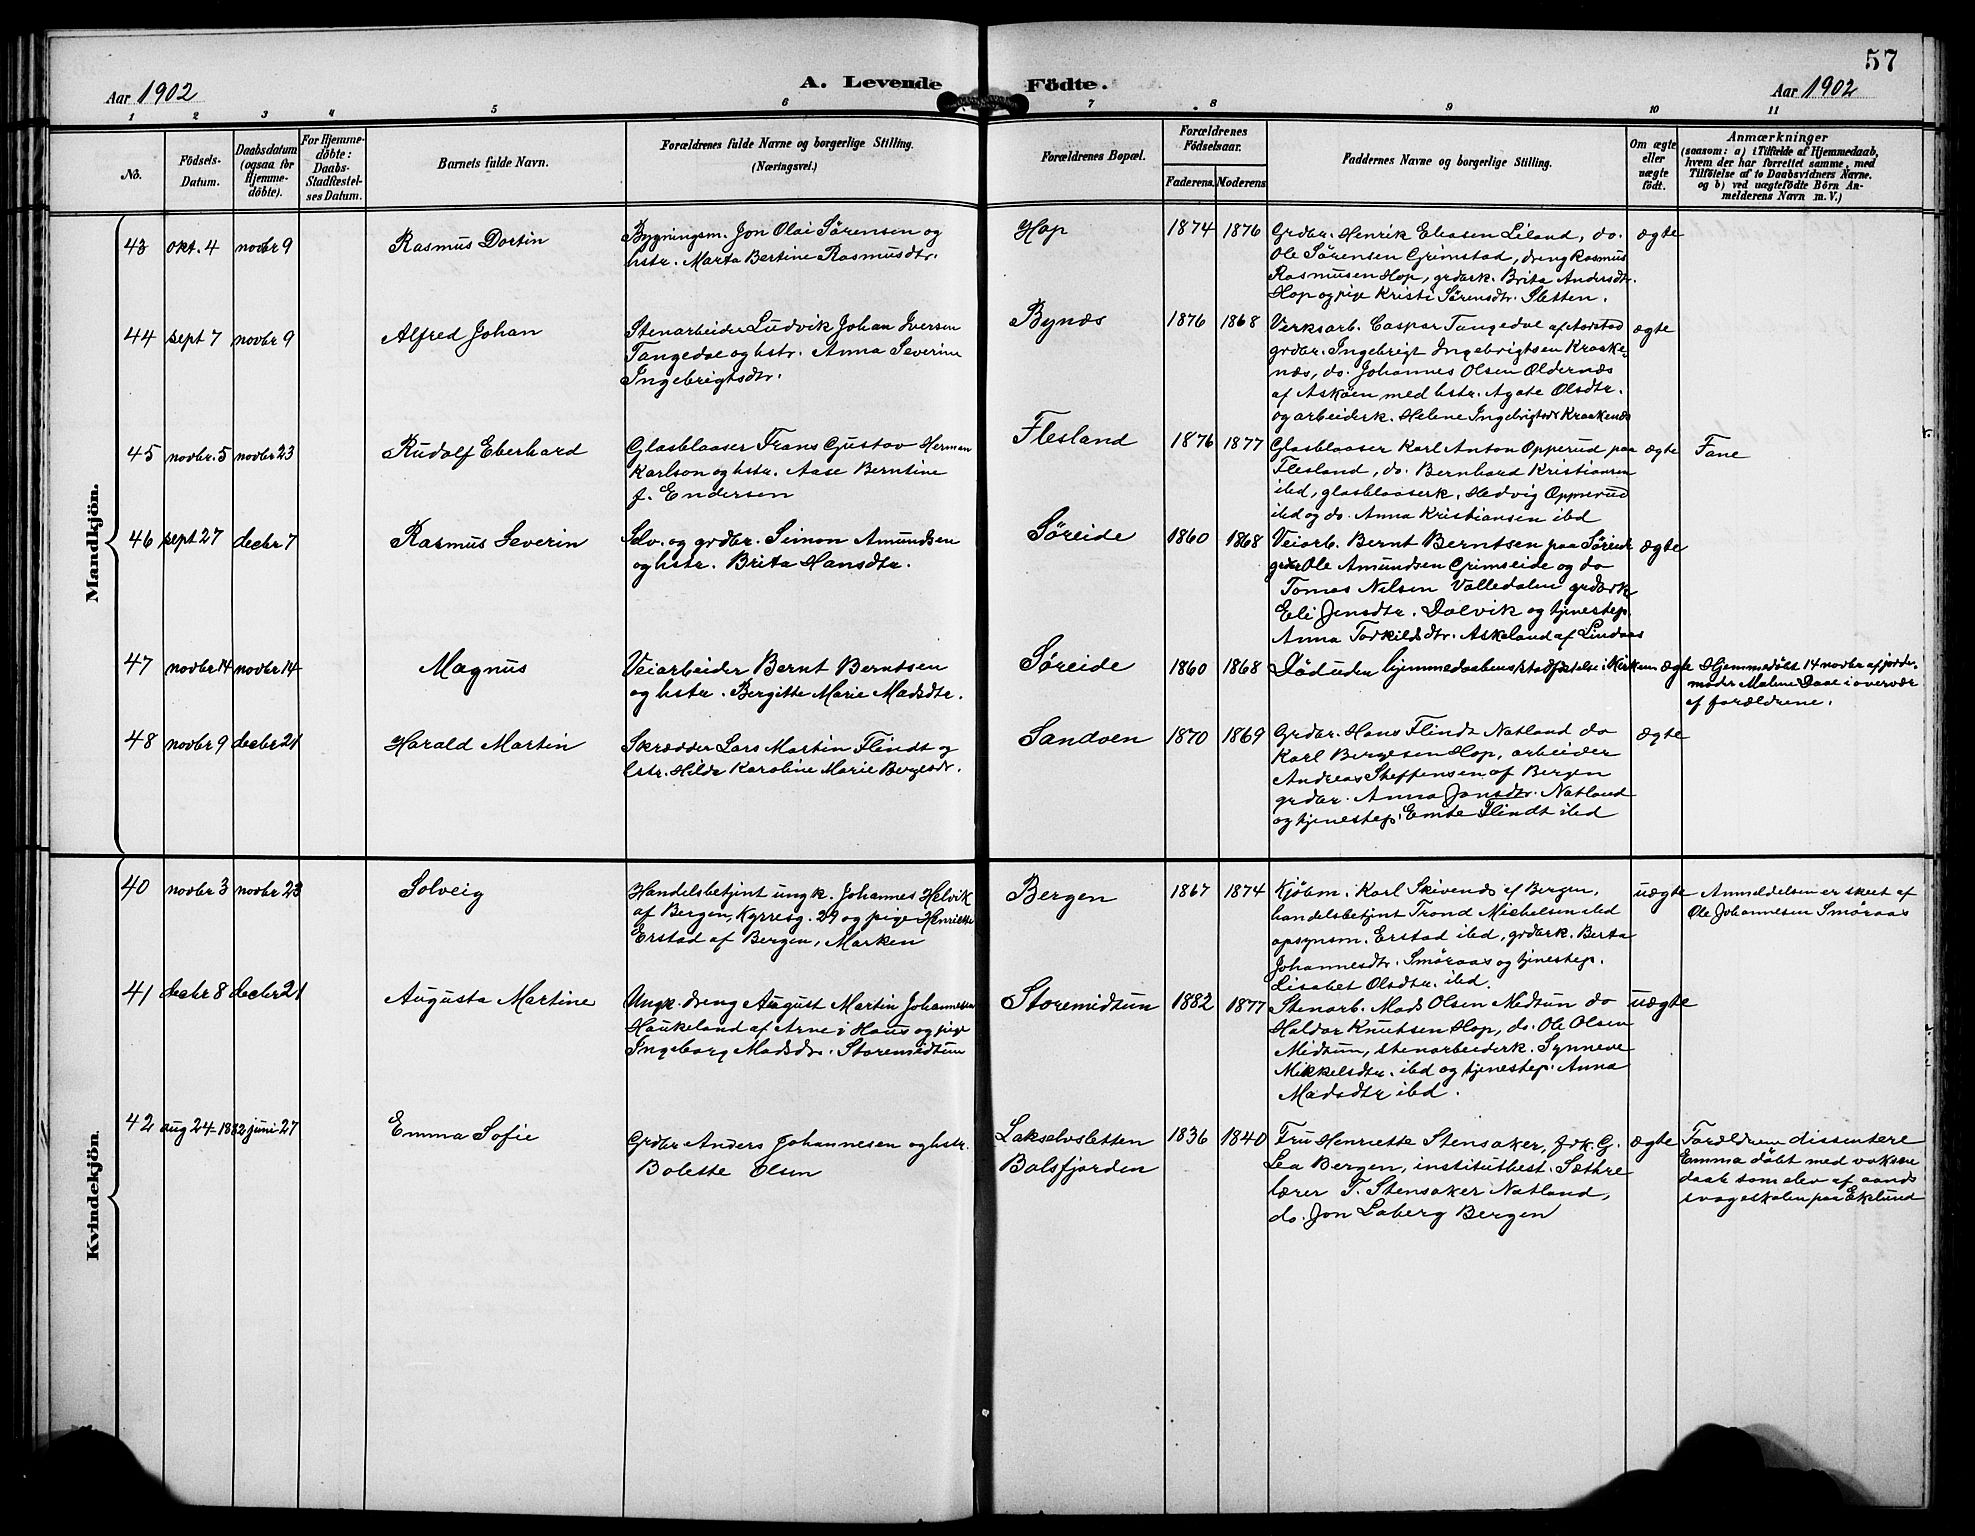 57
Aar 1902
A. Levende Födte.
Aar 1902
1 2 3 4 5 6 7 8 9 10 11
No.
Födsels-
Datum.
Daabsdatum
(ogsaa for
Hjemme-
döbte).
For Hjemme-
döbte:
Daabs-
Stadfæstel-
ses Datum.
Barnets fulde Navn.
Forældrenes fulde Navne og borgerlige Stilling.
(Næringsvei.)
Forældrenes Bopæl.
Forældrenes
Födselsaar.
Faderens. Moderens.
Faddernes Navne og borgerlige Stilling.
Om ægte
eller
uægte
födt.
Anmærkninger
(saasom: a) i Tilfælde af Hjemmedaab,
hvem der har forrettet samme, med
Tilföielse af to Daabsvidners Navne.
og b) ved uægtefödte Börn An-
melderens Navn m. V.)
Mandkjön.
43 okt. 4 novbr 9
Rasmus Dortin
Bygningsm. Jon Olai Sørensen og
hstr. Marta Bertine Rasmusdtr.
Hop
1874 1876
Grdbr. Henrik Eliasen Liland, do.
Ole Sørensen Grimstad, dreng Rasmus
Rasmusen Hop, grdbrk. Brita Andersdtr.
Hop og pige Kristi Sørensdtr. Sletten.
ægte
44 sept 7 novbr 9
Alfred Johan
Stenarbeider Ludvik Johan Iversen
Tangedal og hstr. Anna Severine
Ingebrigtsdtr.
Bynæs
1876 1868
Verksarb. Caspar Tangedal af Aarstad
grdbr. Ingebrigt Ingebrigtsen Kraake-
næs, do. Johannes Olsen Oldernæs
af Askøen med hstr. Agate Olsdtr.
og arbeiderk. Helene Ingebrigtsdr Kraakenæs
ægte
45 novbr. 5 novbr 23
Rudolf Eberhard
Glasblaaser Frans Gustav Herman
Karlson og hstr. Aase Berntine
f. Endersen
Flesland
1876 1877
Glasblaaser Karl Anton Opperud paa
Flesland, do. Bernhard Kristiansen
ibd, glasblaaserk. Hedvig Opperud
ibd og do. Anna Kristiansen ibd
ægte
Fane
46 sept 27 decbr 7
Rasmus Severin
Selv. og grdbr. Simon Amundsen
og hstr. Brita Hansdtr.
Søreide
1860 1868
Veiarb. Bernt Berntsen paa Søreide
grdbr Ole Amundsen Grimseide og do
Tomas Nilsen Valledalen grdbrk
Eli Jensdtr. Dalvik og tjenestep.
Anna Torkildsdtr. Askeland af Lindaas
ægte
47 novbr 14 novbr 14
Magnus
Veiarbeider Bernt Berntsen
og hstr. Bergitte Marie Madsdtr.
Søreide
1860 1868
Død uden hjemmedaabens stadfæstelse i Kirken
ægte
Hjemmedøbt 14 novbr af jorde-
moder Malene Daae i overvær
af forældrene.
48 novbr 9 decbr 21
Harald Martin
Skrædder Lars Martin Flindt og
hstr. Hilda Karoline Marie Bergesdr.
Sandven
1870 1869
Grdbr. Hans Flindt Natland do
Karl Bergesen Hop, arbeider
Andreas Steffensen af Bergen
grdbr. Anna Jansdtr. Natland
og tjenestep. Emte Flindt ibd
ægte
Kvindekjön.
40 novbr 3 novbr 23
Solveig
Handelsbetjent ungk. Johannes Helvik
af Bergen, Kyrresg. 29 og pige Henriette
Erstad af Bergen, Marken
Bergen
1867 1874
Kjøbm. Karl Skivenes af Bergen,
handelsbetjent Trond Michelsen ibd
opsynsm. Erstad ibd, grdbrk. Berta
Johannesdtr. Smøraas og tjenestep.
Lisabet Olsdtr. ibd.
uægte
Anmeldelsen er skeet af
Ole Johannesen Smøraas
41 decbr 8 decbr 21
Augusta Martine
Ungk. dreng August Martin Johannessen
Haukeland af Arne i Haus og pige
Ingeborg Madsdr. Storemidtun
Storemidtun
1882 1877
Stenarb. Mads Olsen Midtun do
Haldor Knutsen Hop, do. Ole Olsen
Midtun, stenarbeiderk. Synneve
Mikkelsdtr. ibd og tjenestep. Anna
Madsdtr ibd.
uægte
42 aug 24-1882 juni 27
Emma Sofie
Grdbr Anders Johannesen og hstr.
Bolette Olsen
Lakselvsletten
Balsfjorden
1836 1840
Fru Henriette Stensaker, frk. G.
Lea Bergen, institutbest. Sæthre
lærer T. Stensaker Natland,
do. Jon Laberg Bergen
ægte
Forældrene dissentere
Emma døbt med voksen
daab som elev af aands
svageskolen paa Eklund